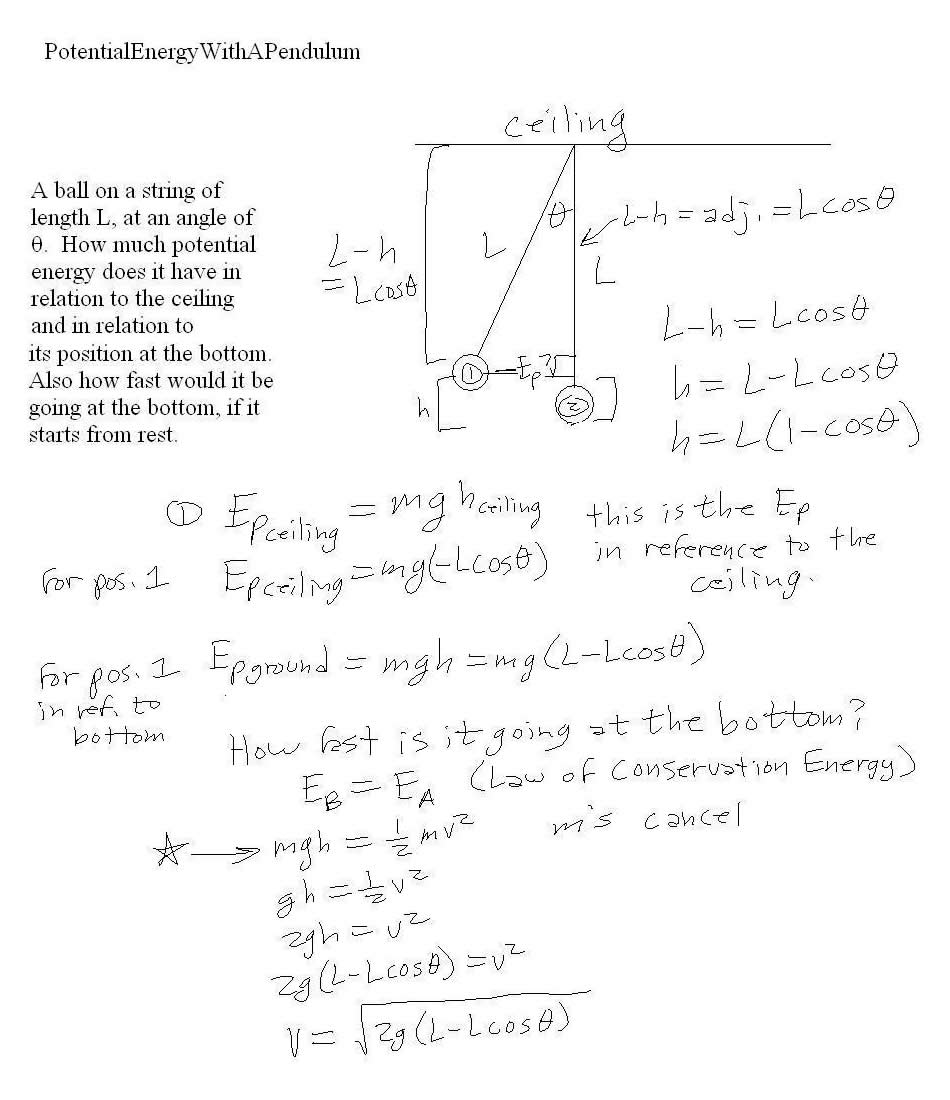 PotentialEnergyWithAPendulum
ceiling
A ball on a string of
length L, at an angle of
θ. How much potential
energy does it have in
relation to the ceiling
and in relation to
its position at the bottom.
Also how fast would it be
going at the bottom, if it
starts from rest.
L-h
= Lcosθ
L
θ
L-h = adj. = Lcosθ
L
① Ep?
h
②
L-h = Lcosθ
h = L-Lcosθ
h = L(1-cosθ)
① Epceiling = mghceiling
this is the Ep
in reference to the
ceiling.
For pos. 1 Epceiling = mg(-Lcosθ)
For pos. 1
in ref. to
bottom
Epground = mgh = mg(L-Lcosθ)
How fast is it going at the bottom?
EB = EA (Law of Conservation Energy)
☆ → mgh = ½mv² m's cancel
gh = ½v²
2gh = v²
2g(L-Lcosθ) = v²
v = √2g(L-Lcosθ)